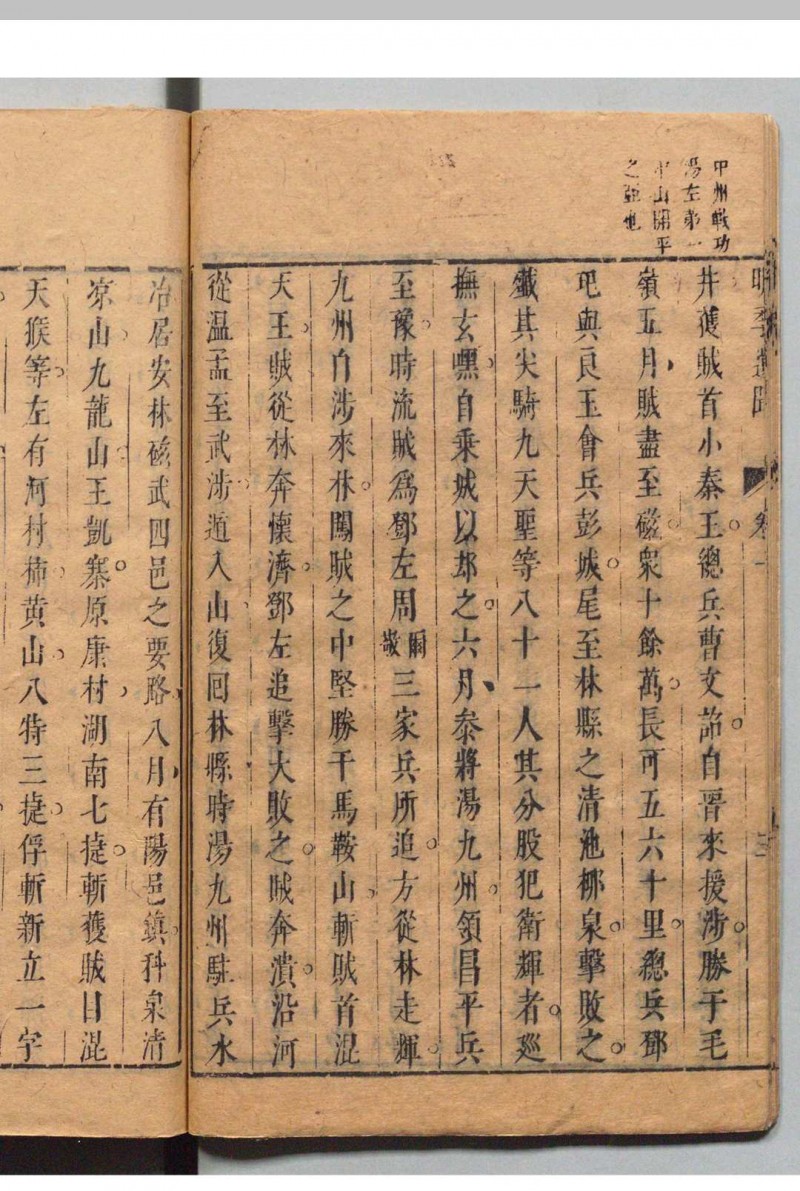 甲州戰功
湯左第一
山開平
之亞也
明季遺聞 卷一 三
井獲賊首小秦王總兵曹文詔自晉來援涉勝于毛
嶺五月賊盡至磁衆十餘萬長可五六十里總兵鄧
玘與良玉會兵彭城尾至林縣之清池栁泉擊敗之
殲其尖騎九天聖等八十一人其分股犯衛輝者巡
撫玄嘿自乘城以却之六月叅將湯九州領昌平兵
至豫時流賊爲鄧左周爾敬三家兵所追方從林走輝
九州自涉來林閗賊之中堅勝于馬鞍山斬賊首混
天王賊從林奔懷濟鄧左追擊大敗之賊奔潰沿河
從温孟至武涉遁入山復囘林縣時湯九州駐兵水
冶居安林磁武四邑之要路八月有陽邑鎮科泉清
凉山九龍山王凱寨原康村湖南七捷斬獲賊目混
天猴等左有河村柿黄山八特三捷俘斬新立一字